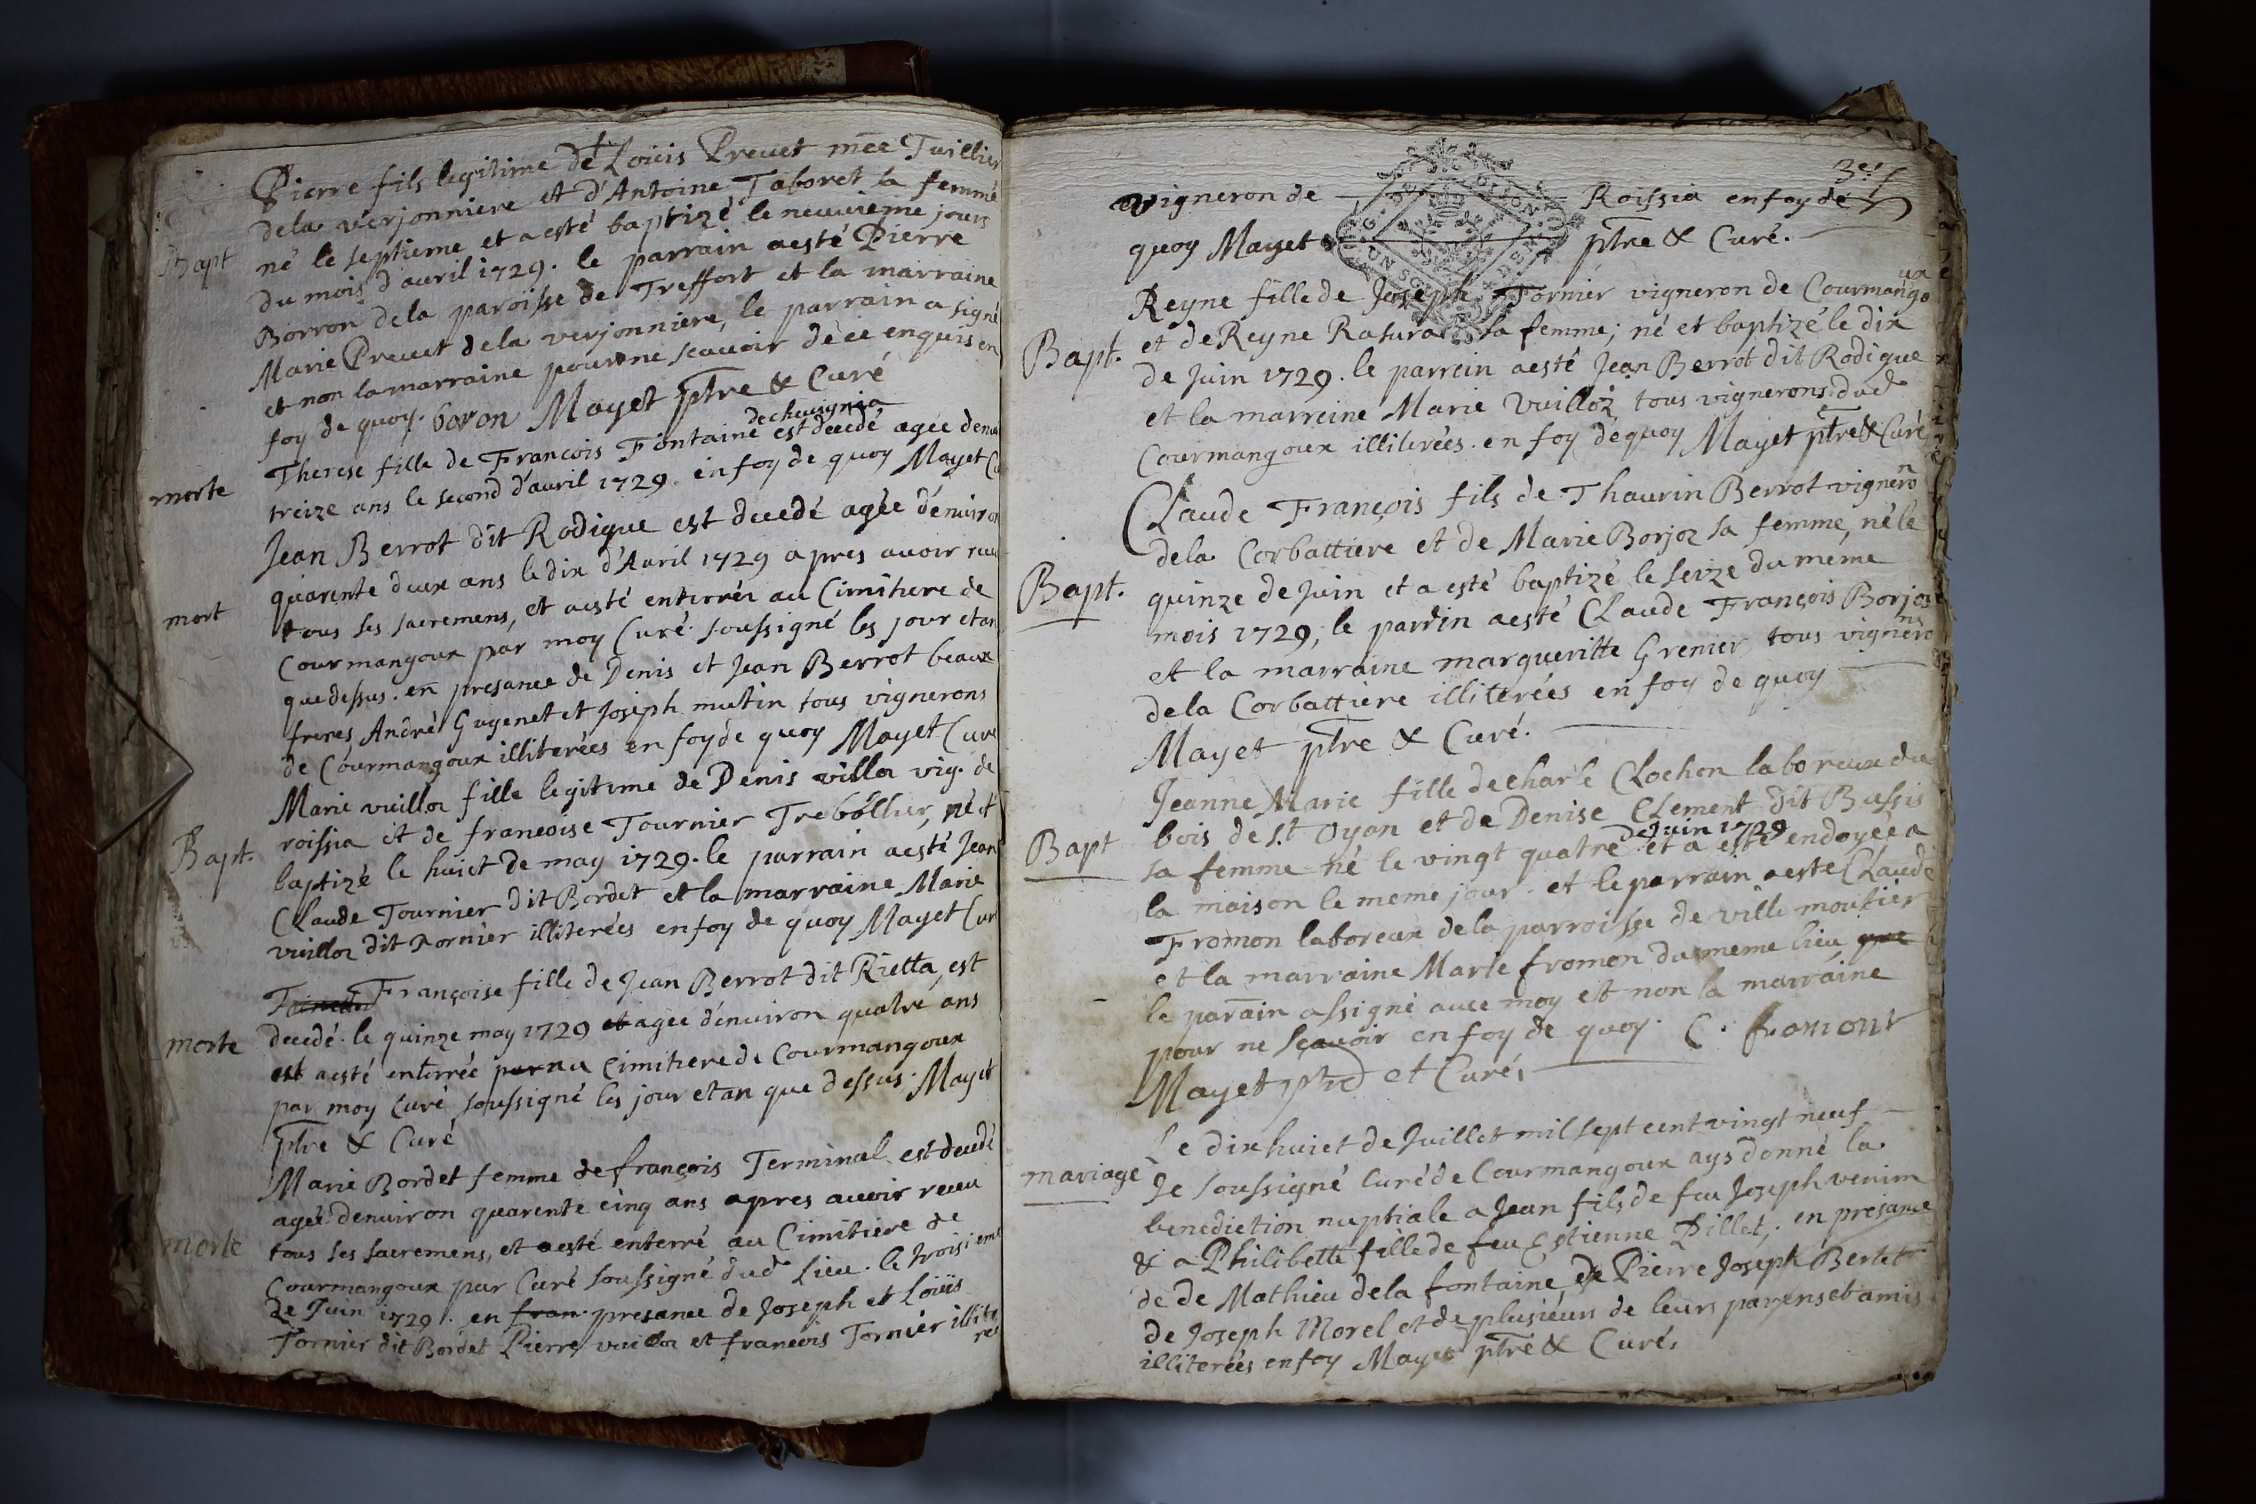 Pierre fils legitime de Loüis Prevet mᵉᵉ Tuillier
dela verjonniere et d'Antoine Taboret sa femme
Bapt né le septieme et a esté baptizé le neuvieme jours
du mois d'avril 1729. le parrain aesté Pierre
Borron dela paroisse de Treffort et la marraine
Marie Prevet dela verjonniere, le parrain a signé
et non la marraine pour ne scavoir dece enquis en
foy de quoy. boron Mayet ptre & Curé
dechevignia
Therese fille de François Fontaine est decedé agée denv
morte treize ans le second d'avril 1729. en foy de quoy Mayet Cu
Jean Berrot dit Rodique est decedé agée d'environ
quarente deux ans le dix d'Avril 1729 apres avoir receu
mort tous ses sacremens, et aesté enterrée au Cimitiere de
Courmangoux par moy Curé soussigné les jour et an
que dessus. en presance de Denis et Jean Berrot beaux
freres, André Gugenet et Joseph mutin tous vignerons
de Courmangoux illiterées en foy de quoy Mayet Curé
Marie vuilloz fille legitime de Denis villoz vig. de
roissia et de francoise Tournier Trebollier, né et
Bapt. baptizé le huict de may 1729. le parrain aesté Jean
Claude Tournier dit Bordet et la marraine Marie
vuilloz dit Fornier illiterées en foy de quoy Mayet Cur
Françoise fille de Jean Berrot dit Rietta, est
decedé le quinze may 1729 et agee d'environ quatre ans
morte est aesté enterrée par au Cimitiere de Courmangoux
par moy Curé soussigné les jour et an que dessus. Mayet
ptre & Curé
Marie Bordet femme de françois Terminal est decedé
agée denviron quarente cinq ans apres avoir receu
morte tous ses sacremens, et aesté enterré au Cimitiere de
Courmangoux par Curé soussigné dud Lieu. le troisieme
de Juin 1729. en fran presance de Joseph et Loüis
Tornier dit Bordet Pierre vuilloz et francois Tornier illite
rés
3e f
vigneron de Roissia en foy de
quoy Mayet ptre & Curé.
G. DE DIJON
UN SOL
DEN
Reyne fille de Joseph Fornier vigneron de Courmango
ux
et de Reyne Rasura sa femme; né et baptizé le dix
Bapt. de Juin 1729. le parrein aesté Jean Berrot dit Rodique
et la marreine Marie Vuilloz tous vignerons dud
Courmangoux illiterées. en foy dequoy Mayet ptre & Curé
Claude François fils de Thaurin Berrot vigneron
dela Corbattiere et de Marie Borjoz sa femme, né le
Bapt. quinze de Juin et a esté baptizé le seize du méme
mois 1729; le parrin aesté Claude François Borjos
et la marraine margueritte Grenier tous vignerons
dela Corbattiere illiterées en foy de quoy
Mayet ptre & Curé.
Jeanne Marie fille de charle Clochon laboreux du
bois de St Oyan et de Denise Clement dit Bussis
de Juin 1729
Bapt sa femme né le vingt quatre et a esté endoyée a
la maison le meme jour. et le parrain aeste Claude
Fromon laboreux dela parroisse de ville moutier
et la marraine Marie fromon du meme lieu que
le parain a signé avec moy et non la marraine
pour ne scavoir en foy de quoy. C. fromont
Mayet ptre et Curé.
Le dixhuict de Juillet mil sept cent vingt neuf
mariage Je soussigné Curé de Courmangoux ays donné la
benediction nuptiale a Jean fils de feu Joseph venim
& a Philibette fille de feu Estienne Pillet; en presance
de de Mathieu dela fontaine, de Pierre Joseph Bertet
de Joseph Morel et de plusieurs de leurs parens et amis
illiterées en foy Mayet ptre & Curé.